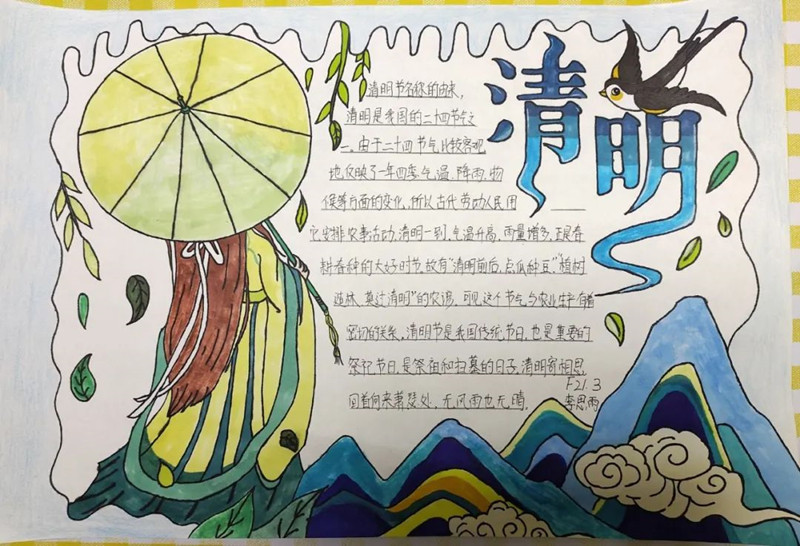 清明
清明节名称的由来,
清明是我国的二十四节气之
一、由于二十四节气比较客观
地反映了一年四季气温、降雨、物
候等方面的变化,所以古代劳动人民用
它安排农事活动,清明一到,气温升高,雨量增多,正是春
耕春种的大好时节,故有“清明前后,点瓜种豆”、“植树
造林,莫过清明”的农谚。可见这个节气与农业生产有着
密切的关系。清明节是我国传统节日,也是重要的
祭祀节日,是祭祖和扫墓的日子,清明寄相思,
回首向来萧瑟处,无风雨也无晴,
F21.3
李思雨